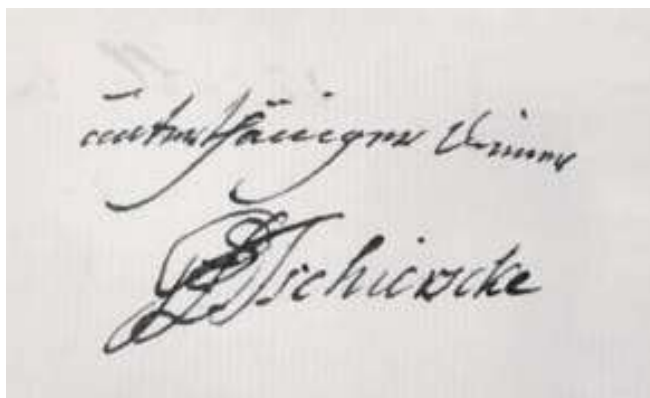 unterthäniger Diener
Tschierscke